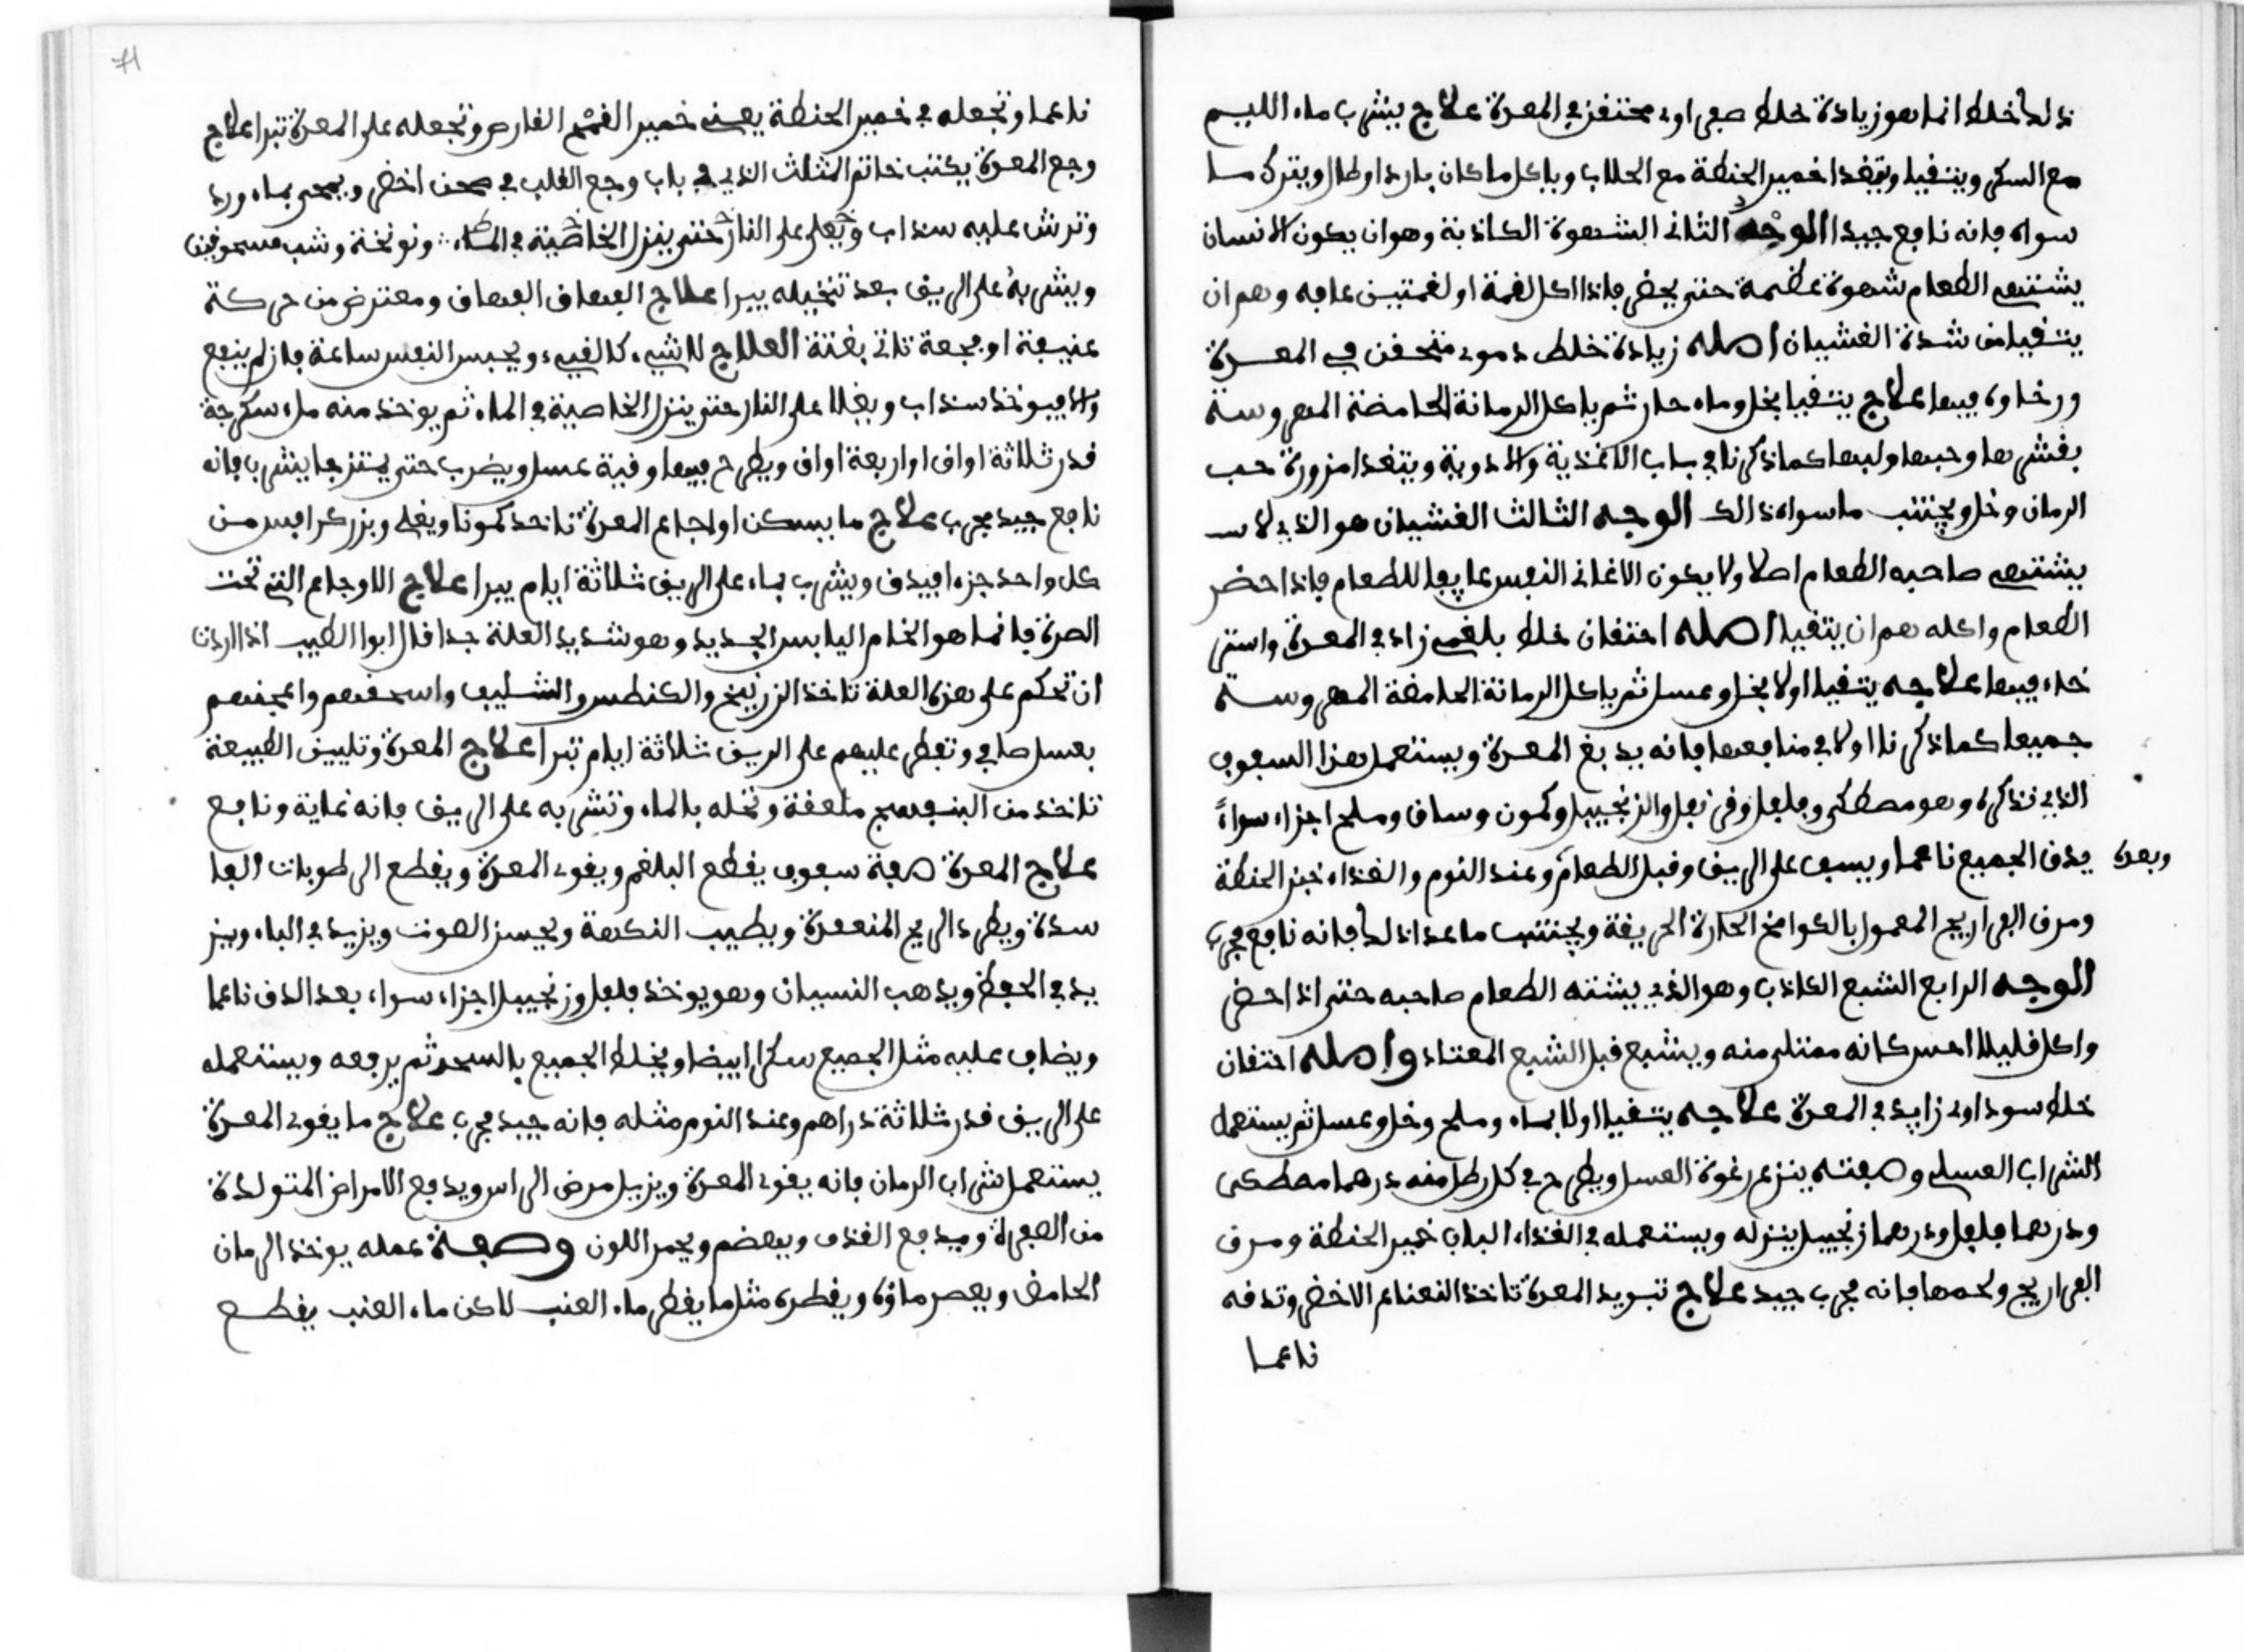 ذلك خلط انما هو زيادة خلط صفراوى محتقن في المعدة علاج يشرب ماء الليم
مع السكر ويتقيا ويتغدا خمير الحنطة مع الحلاب وياكل ما كان باردا رطبا ويترك ما
سواه فانه نافع جيد الوجه الثانى الشهوة الكاذبة وهو ان يكون الانسان
يشتهى الطعام شهوة عظيمة حتى يحضر فاذا اكل لقمة او لقمتين عافه وهم ان
يتقيا من شدة الغشيان اصله زيادة خلط دموى متحقن في المعدة
ورخاوه فيها علاج يتقيا بخل وماء حار ثم ياكل الرمانة الحامضة المهروسة
بقشرها وحبها ولبها كما ذكرنا في باب الاغذية والادوية ويتغدا مزورة حب
الرمان وخل ويجتنب ما سواه ذالك الوجه الثالث الغشيان هو الذي لا
يشتهى صاحبه الطعام اصلا ولا يكون الاغانى النفس عايفا للطعام فاذا حضر
الطعام واكله هم ان يتقيا اصله احتقان خلط بلغمى زاد في المعدة واستر
خاء فيها علاجه يتقيا اولا بخل وعسل ثم ياكل الرمانة الحامضة المهروسة
جميعا كما ذكرنا اولا في منافعها فانه يدبغ المعدة ويستعمل هذا السفوف
الذي نذكره وهو مصطكى وفلفل وقرنفل والزنجبيل وكمون وساق وملح اجزاء سواءً
يدق الجميع ناعما ويسف على الريق وقبل الطعام وعند النوم والغذاء خبز الحنطة
وبعده
ومرق الفراريج المعمول بالكوامخ الحارة الحريفة ويجتنب ما عدا ذلك فانه نافع مجرب
الوجه الرابع الشبع الكاذب وهو الذي يشته الطعام صاحبه حتى اذا حضر
واكل قليلا احس كانه ممتلى منه ويشبع قبل الشبع المعتاد واصله احتقان
خلط سوداوى زايد في المعدة علاجه يتقيا اولا بماء وملح وخل وعسل ثم يستعمل
الشراب العسلى وصفته ينزع رغوة العسل ويطرح في كل رطل منه درهما مصطكى
ودرهما فلفل ودرهما زنجبيل ينزله ويستعمله في الغذاء الباب خمير الحنطة ومرق
الفراريج ولحمها فانه مجرب جيد علاج تبريد المعدة تاخذ النعناع الاخضر وتدقه
ناعما
71
ناعما وتجعله في خمير الحنطة يعنى خمير القمح القارص وتجعله على المعدة تبرا علاج
وجع المعدة يكتب خاتم المثلث الذي في باب وجع القلب في صحن اخضر ويمحى بماء ورد
وترش عليه سنداب ويغلى على النار حتى ينزل الخاصية في الماء ونونخة وشب مسحوقين
ويشربهُ على الريق بعد تنخيله يبرا علاج الفهاق الفهاق ومعترض من حركة
عنيفة او فجعة تاتى بغتة العلاج لاشىء كالقىء ويحبس النفس ساعة فان لم ينفع
والا فيوخذ سنداب ويغلا على النار حتى ينزل الخاصية في الماء ثم يوخذ منه ملء سكرجة
قدر ثلاثة اواق او اربعة اواق ويطرح فيها وقية عسل ويضرب حتى يمتزجا يشرب فانه
نافع جيد مجرب علاج ما يسكن اوجاع المعدة تاخد كمونا ويغلى وبزر كرافس من
كل واحد جزءا فيدق ويشرب بماء على الريق ثلاثة ايام يبرا علاج الاوجاع التى تحت
الصرة فانما هو الخام اليابس الجديد وهو شديد العلة جدا قال ابوا الطيب اذا اردت
ان تحكم على هذه العلة تاخذ الزرنيخ والكنطس والشليف واسحقهم واعجنهم
بعسل صافي وتفطر عليهم على الريق ثلاثة ايام تبرا علاج المعدة وتليين الطبيعة
تاخذ من البنفسج ملعقة وتحله بالماء وتشربه على الريق فانه غاية ونافع
علاج المعدة صفة سفوف يقطع البلغم ويقوى المعدة ويقطع الرطوبات الفا
سدة ويطرد الريح المنعقدة ويطيب النكهة ويحسن الصوت ويزيد في الباه ويز
يد في الحفظ ويذهب النسيان وهو يوخذ فلفل وزنجبيل اجزاء سواء بعد الدق ناعما
ويضاف عليه مثل الجميع سكرا ابيضا ويخلط الجميع بالسحق ثم يرفعه ويستعمله
على الريق قدر ثلاثة دراهم وعند النوم مثله فانه جيد مجرب علاج ما يقوى المعدة
يستعمل شراب الرمان فانه يقوى المعدة ويزيل مرض الراس ويدفع الامراض المتولدة
من الصفراء ويدفع القذف ويهضم ويحمر اللون وصفة عمله يوخذ الرمان
الحامض ويعصر ماؤه ويقطره مثل ما يقطر ماء العنب لاكن ماء العنب يقطع